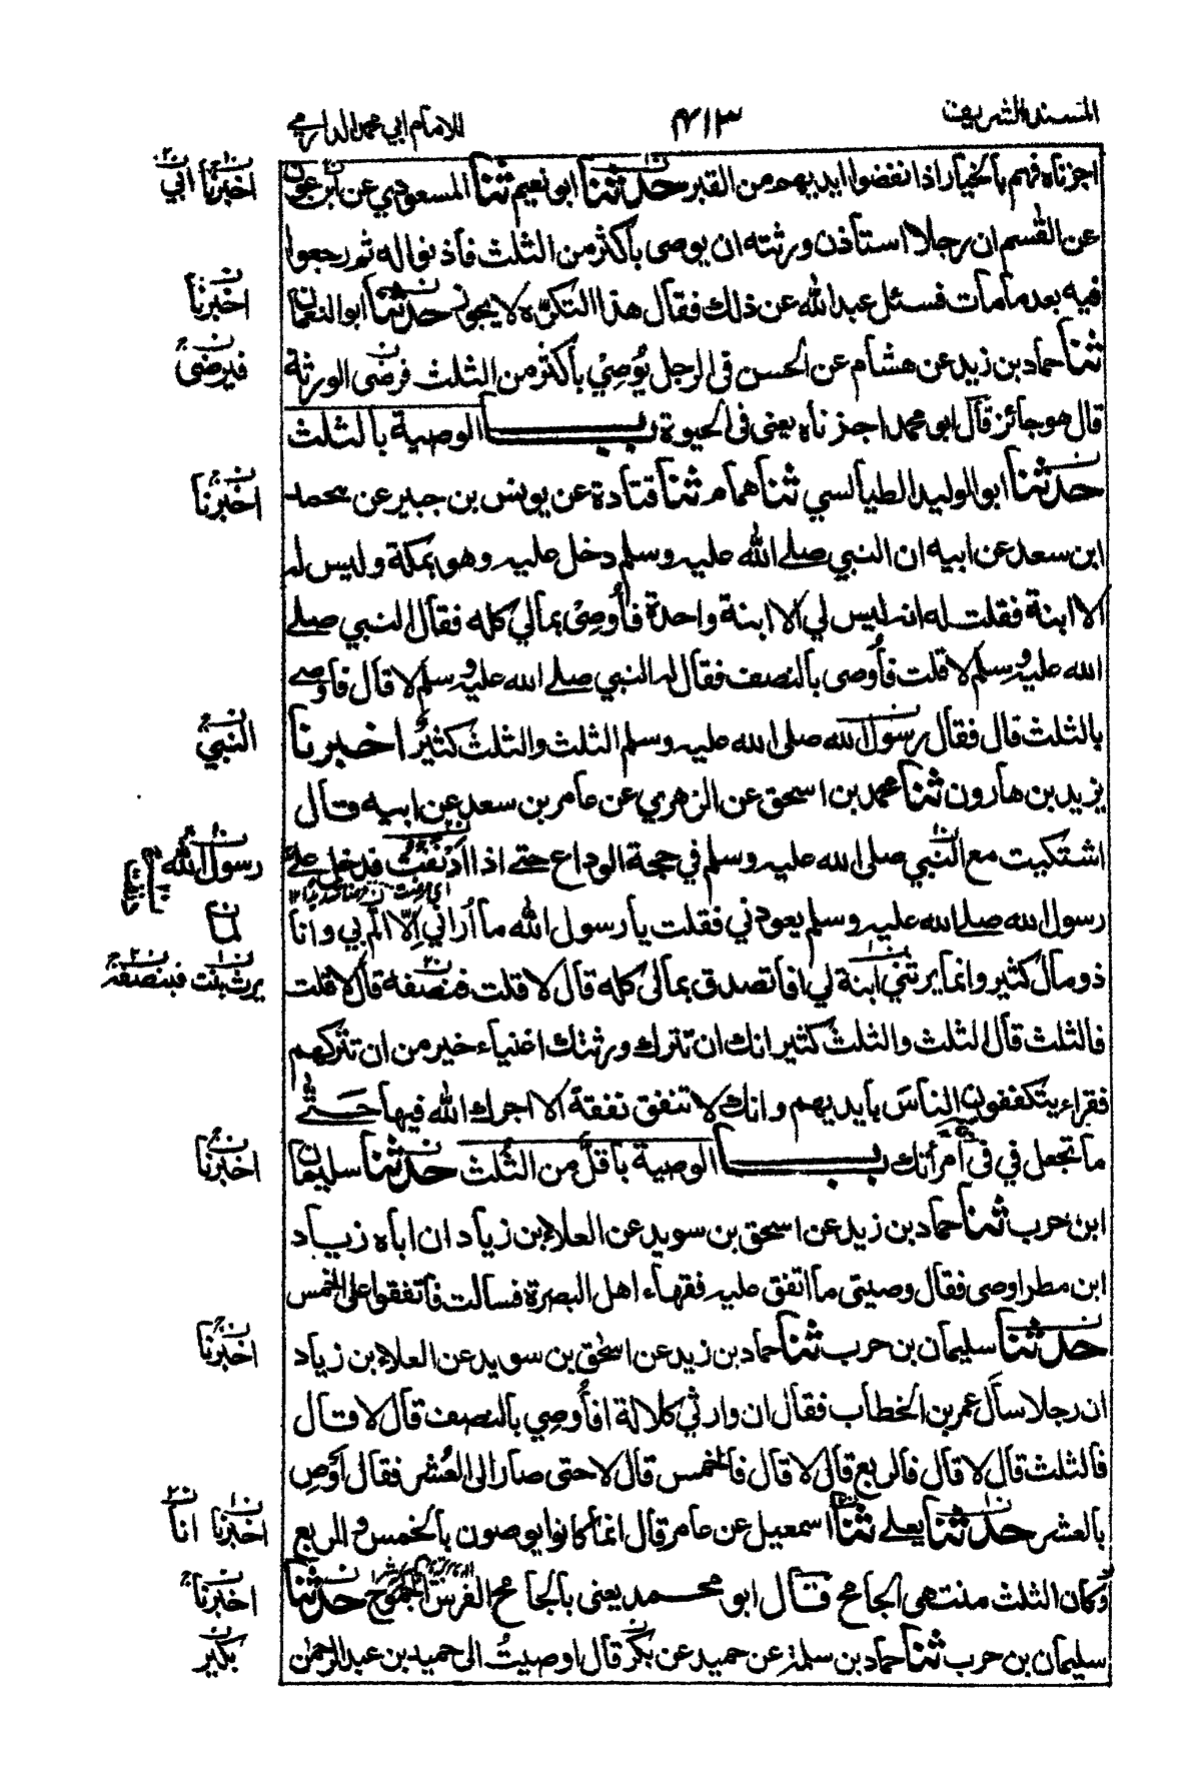 المسند الشريف
٤١٣
للامام ابي محمد الدارمي
اجزناه فهم بالخيار اذا نفضوا ايديهم من القبر حدثنا ابو نعيم ثنا المسعودي عن ابن عون
عن القسم ان رجلا استأذن ورثته ان يوصى بأكثر من الثلث فأذنوا له ثم رجعوا
فيه بعد ما مات فسئل عبد الله عن ذلك فقال هذا التكرّه لا يجوز حدثنا ابو النعمان
ثنا حماد بن زيد عن هشام عن الحسن فى الرجل يُوصِيْ بأكثر من الثلث فرضى الورثة
قال هو جائز قال ابو محمد اجزناه يعنى فى الحيوة باب الوصية بالثلث
حدثنا ابو الوليد الطيالسي ثنا همام ثنا قتادة عن يونس بن جبير عن محمد
ابن سعد عن ابيه ان النبي صلى الله عليه وسلم دخل عليه وهو بمكة وليس له
الا ابنة فقلت له انه ليس لي الا ابنة واحدة فأُوصِى بمالي كله فقال النبي صلى
الله عليه وسلم لا قلت فأُوصى بالنصف فقال له النبي صلى الله عليه وسلم لا قال فأوصى
بالثلث قال فقال رسول الله صلى الله عليه وسلم الثلث والثلث كثيرٌ اخبرنا
يزيد بن هارون ثنا محمد بن اسحق عن الزهري عن عامر بن سعد عن ابيه قال
اشتكيت مع النبي صلى الله عليه وسلم في حجة الوداع حتى اذا ادنفت فدخل علىّ
رسول الله صلى الله عليه وسلم يعودني فقلت يا رسول الله ما أُراني اِلّا ألم بي وانا
ذو مال كثير وانما يرثني ابنة لي افاتصدق بمالى كله قال لا قلت فنصفه قال لا قلت
فالثلث قال الثلث والثلث كثير انك ان تترك ورثتك اغنياء خير من ان تتركهم
فقراء يتكففون الناسَ بأيديهم وانك لا تنفق نفقة الا اجرك الله فيها حَتّٰى
ما تجعل في فى امرأتك باب الوصية بأقلَّ من الثُلث حدثنا سليمان
ابن حرب ثنا حماد بن زيد عن اسحق بن سويد عن العلاء بن زياد ان اباه زياد
ابن مطر اوصى فقال وصيتى ما اتفق عليه فقهاء اهل البصرة فسألت فأتفقوا على الخمس
حدثنا سليمان بن حرب ثنا حماد بن زيد عن اسحٰق بن سويد عن العلاء بن زياد
ان رجلا سأل عمر بن الخطاب فقال ان وارثي كلالة افأُوصِي بالنصف قال لا قال
فالثلث قال لا قال فالربع قال لا قال فالخمس قال لا حتى صار الى العُشر فقال أَوْصِ
بالعشر حدثنا يعلى ثنا اسمعيل عن عامر قال انما كانوا يوصون بالخمس و الربع
وكان الثلث منتهى الجامح قال ابو محمد يعنى بالجامح الفرس الجَمُوح حدثنا
سليمان بن حرب ثنا حماد بن سلمة عن حميد عن بكر قال اوصيتُ الى حميد بن عبد الرحمن
اخبرنا ابي
اخبرنا
فيرضى
اخبرنا
النبي
رسول الله
لما
يرث بنت فبنصفه
اخبرنا
اخبرنا
اخبرنا انا
اخبرنا
بكير